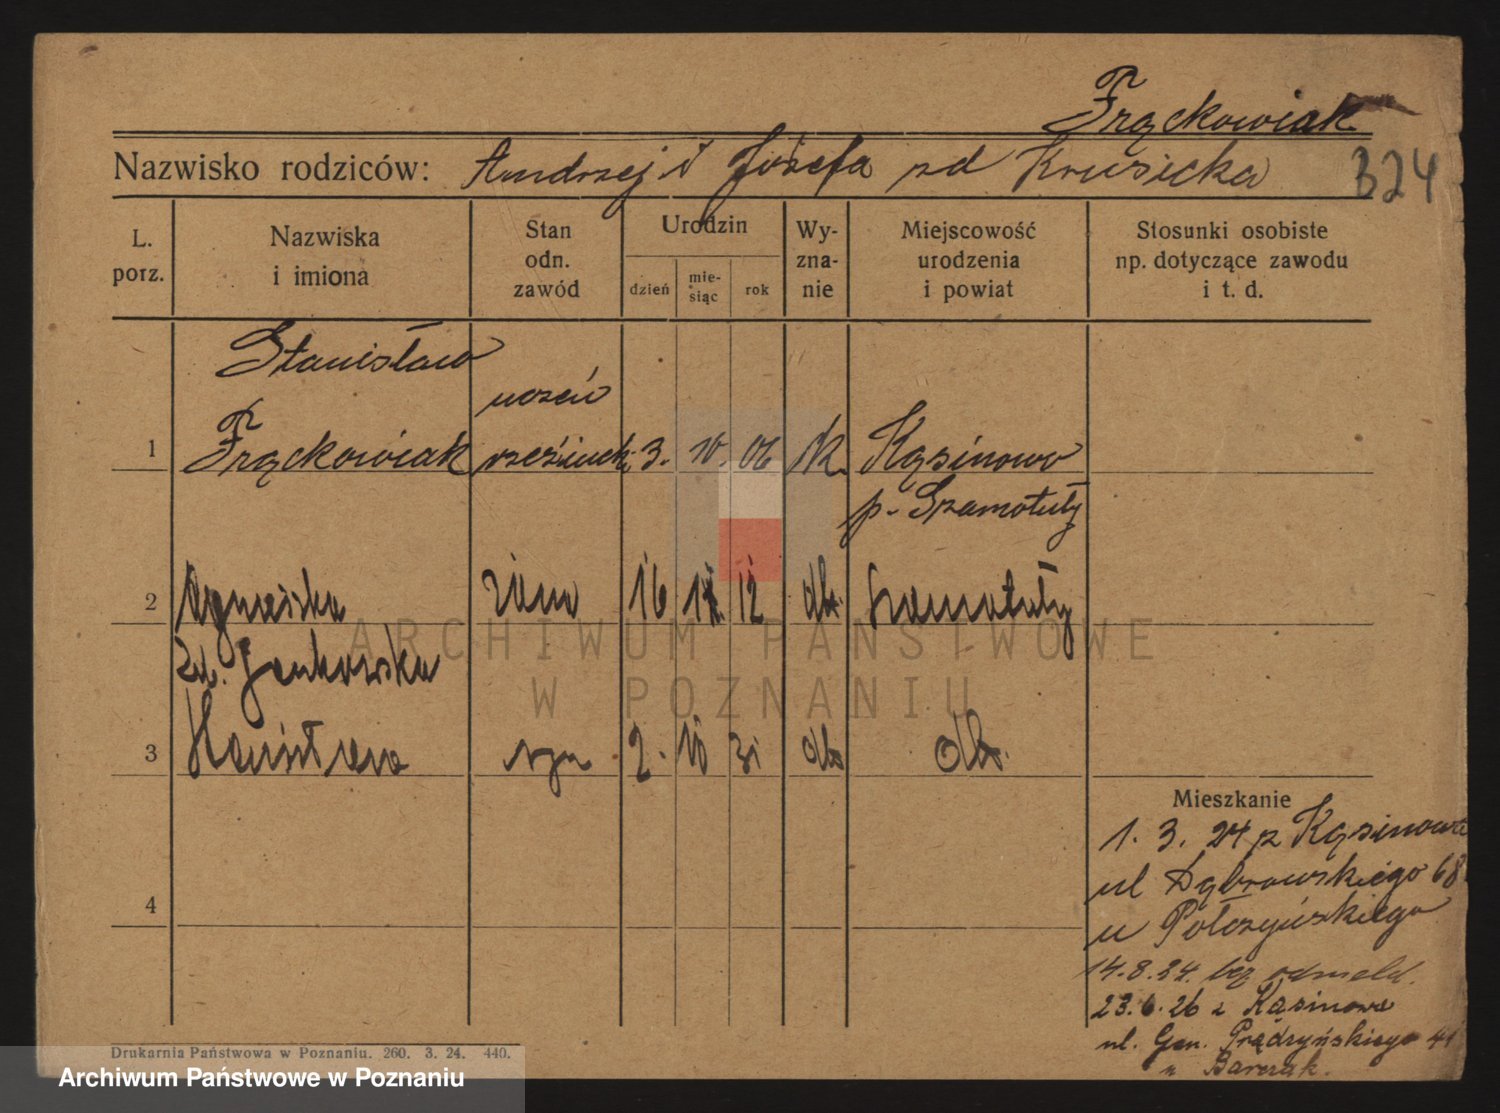 Frąckowiak
Nazwisko rodziców: Andrzej i Józefa zd Krusicka 324
L. porz. Nazwiska i imiona Stan odn. zawód Urodzin dzień mie- siąc rok Wy- zna- nie Miejscowość urodzenia i powiat Stosunki osobiste np. dotyczące zawodu i t. d.
Stanisław
uczeń
1 Frąckowiak rzeźnick. 3. 10. 06 rk. Kąsinowo
p. Szamotuły
2 Agnieszka żona 16 12 dto. Szamotuły
zd. Jankowska
3 syn 2. 10 31 dto dto.
ARCHIWUM PAŃSTWOWE
W POZNANIU
Mieszkanie
1. 3. 24 z Kąsinowa
4 ul Dąbrowskiego 68
u Połczyńskiego
14.8.24. bez odmeld.
23.6.26 z Kąsinowa
ul. Gen. Prądzyńskiego 41
" Barczak.
Drukarnia Państwowa w Poznaniu. 260. 3. 24. 440.
Archiwum Państwowe w Poznaniu